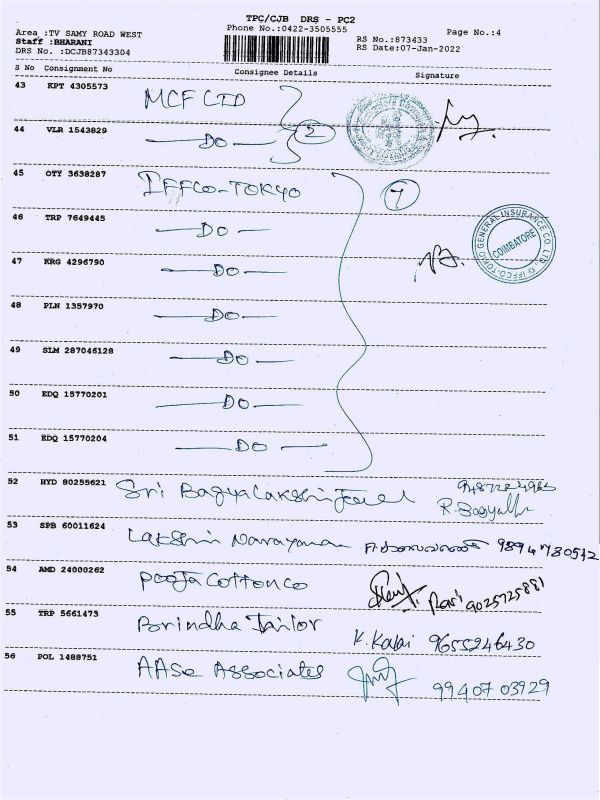 TPC/CJB DRS - PC2
Phone No.:0422-3505555
Page No.:4
Area :TV SAMY ROAD WEST
Staff :BHARANI
DRS No. :DCJB87343304
RS No.:873433
RS Date:07-Jan-2022
S No Consignment No Consignee Details Signature
43 KPT 4305573 MCF LTD
2
44 VLR 1543829 DO
45 OTY 3638287 IFFCO-TOKYO 7
46 TRP 7649445 DO
IFFCO-TOKIO GENERAL INSURANCE CO. LTD.
COIMBATORE
47 KRG 4296790 DO
48 PLN 1357970 DO
49 SLM 287046128 DO
50 EDQ 15770201 DO
51 EDQ 15770204 DO
52 HYD 80255621 Sri Bagyalakshi Jewel
53 SPB 60011624 Lakshmi Narayanan
54 AMD 24000262 Pooja Cotton Co Ravi 9025725881
55 TRP 5661473 Brindha Tailor K. Kalai 9655246430
56 POL 1488751 AASe Associates 99407 03929